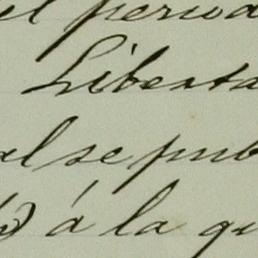 el period
Liberta
al se pub
á la qu